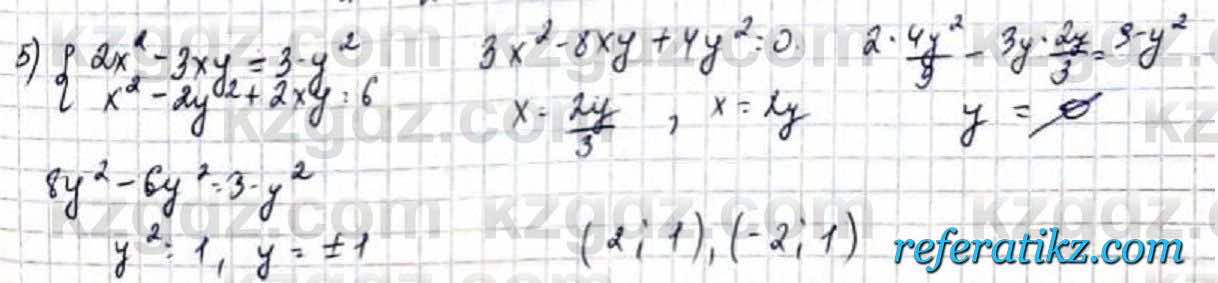 5) { 2x² - 3xy = 3 - y²
x² - 2y² + 2xy = 6
3x² - 8xy + 4y² = 0.
x = 2y/3 , x = 2y
2 · 4y²/9 - 3y · 2y/3 = 3 - y²
y = ∅
8y² - 6y² = 3 - y²
y² = 1, y = ±1
(2; 1), (-2; 1)
kzgdz.com
referatikz.com